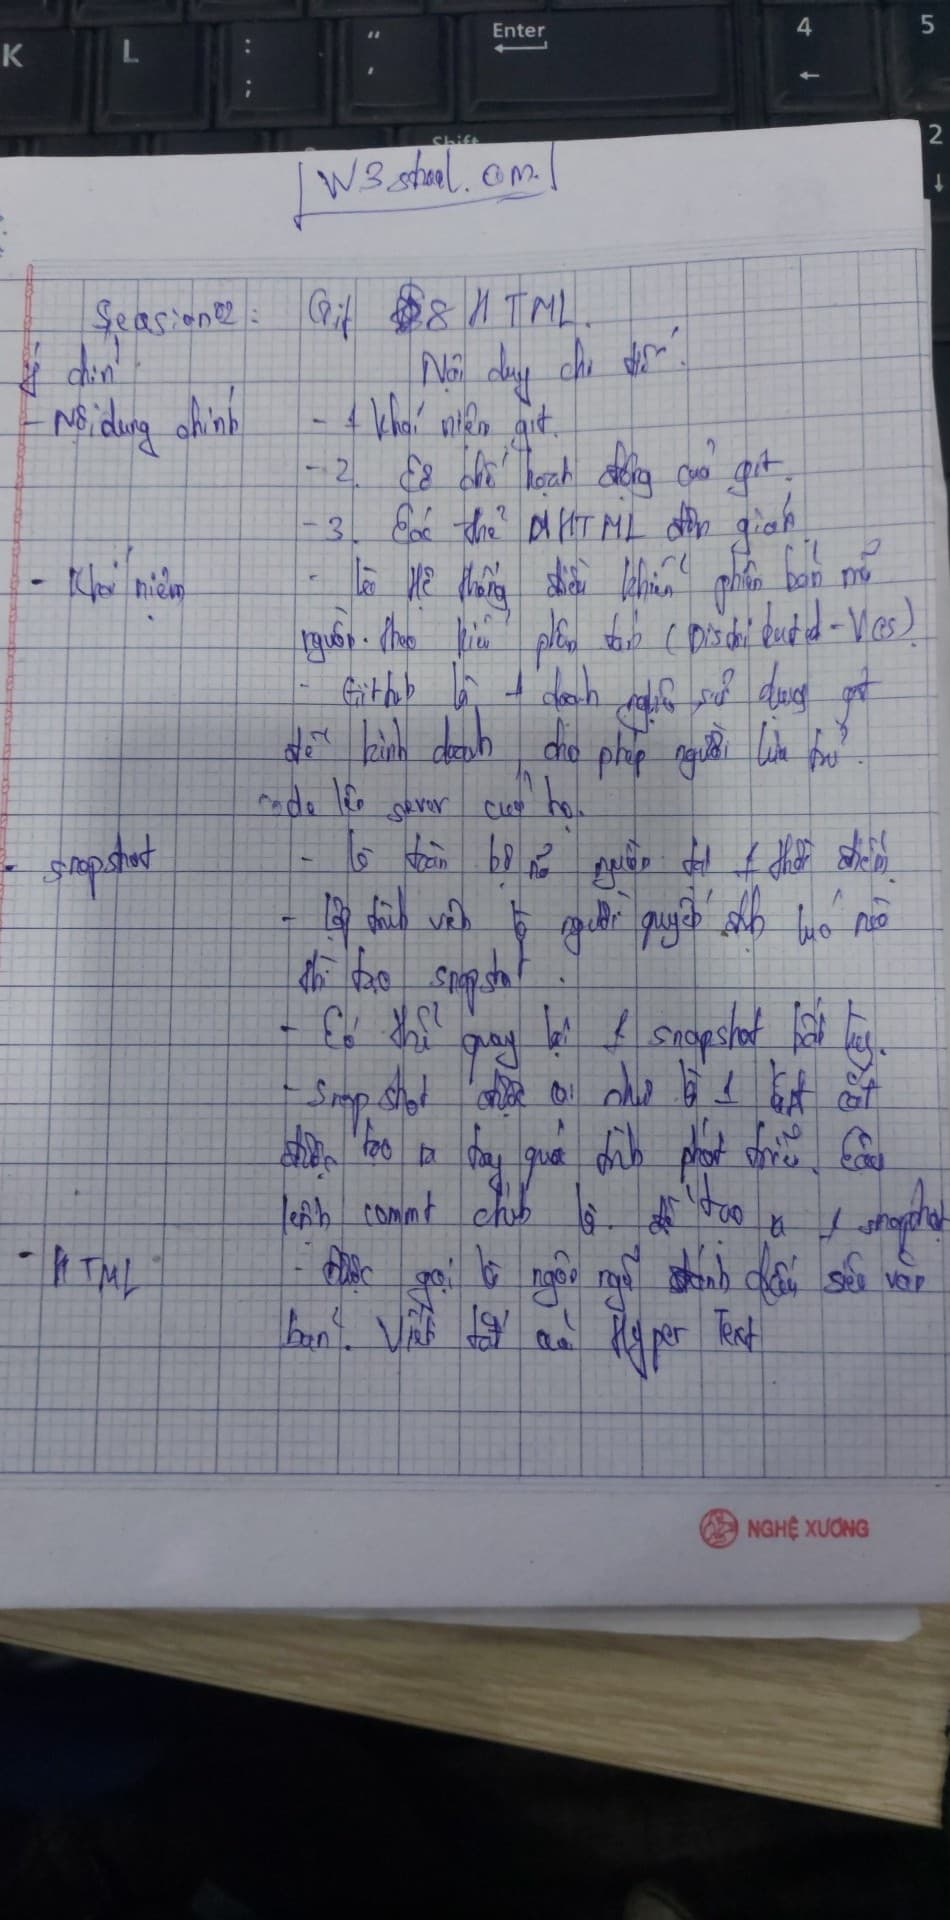 K L : ; " ' Enter 4 5
Shift 2
W3 school.com
Session 02: Git & HTML.
Ý chính Nội dung chi tiết.
- Nội dung chính - 1 Khái niệm git.
- 2. Cơ chế hoạt động của git.
- 3. Các thẻ HTML đơn giản
- Khái niệm - là Hệ thống điều khiển phiên bản mã
nguồn theo kiểu phân tán (Distributed-VCS)
- Github là 1 doanh nghiệp sử dụng git
để kinh doanh cho phép người lưu trữ
code lên server của họ.
- snapshot - là toàn bộ mã nguồn tại 1 thời điểm
- lập trình viên là người quyết định lúc nào
thì tạo snapshot.
- Có thể quay lại 1 snapshot bất kỳ.
- Snapshot được coi như là 1 cắt
được tạo ra trong quá trình phát triển. Câu
lệnh commit chính là để tạo ra 1 snapshot
- HTML - Được gọi là ngôn ngữ đánh dấu siêu văn
bản. Viết tắt của Hyper Text
NGHỆ XƯƠNG